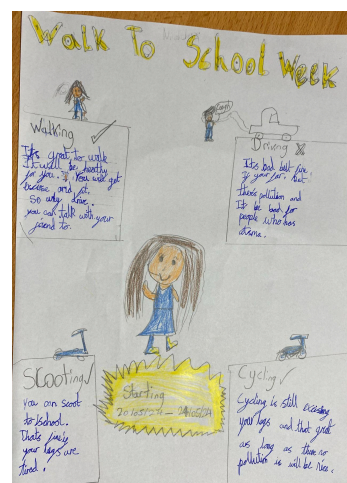 Walk To School Week
Walking ✓
It's great to walk
It will be healthy
for you. You will get
exercise and fit.
So why drive.
you can talk with your
friend to.
Driving X
It's bad but fine
if your far. But
there's pollution and
It's be bad for
people who has
asma.
Scooting ✓
you can scoot
to school.
That's fine if
your legs are
tired.
Starting
20/05/24 - 24/05/24
Cycling ✓
Cycling is still exersing
your legs and that great
as long as there no
pollution is will be nice.